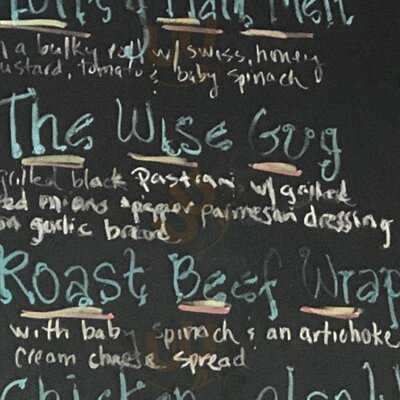 Ham Melt
a bulky roll w/ swiss, honey
ustard, tomato & baby spinach
The Wise Guy
grilled black Pastrami w/ grilled
ed onions & pepper parmesan dressing
on garlic bread
Roast Beef Wrap
with baby spinach & an artichoke
cream cheese spread
Chicken